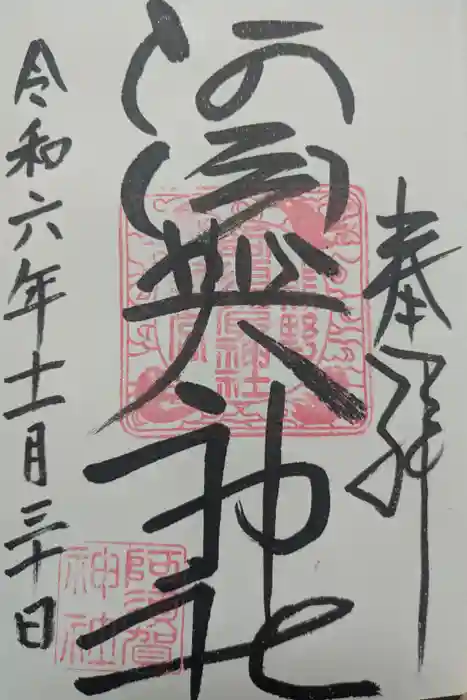 奉拝
阿須賀神社
令和六年十一月三十日
熊野
阿須賀
神社